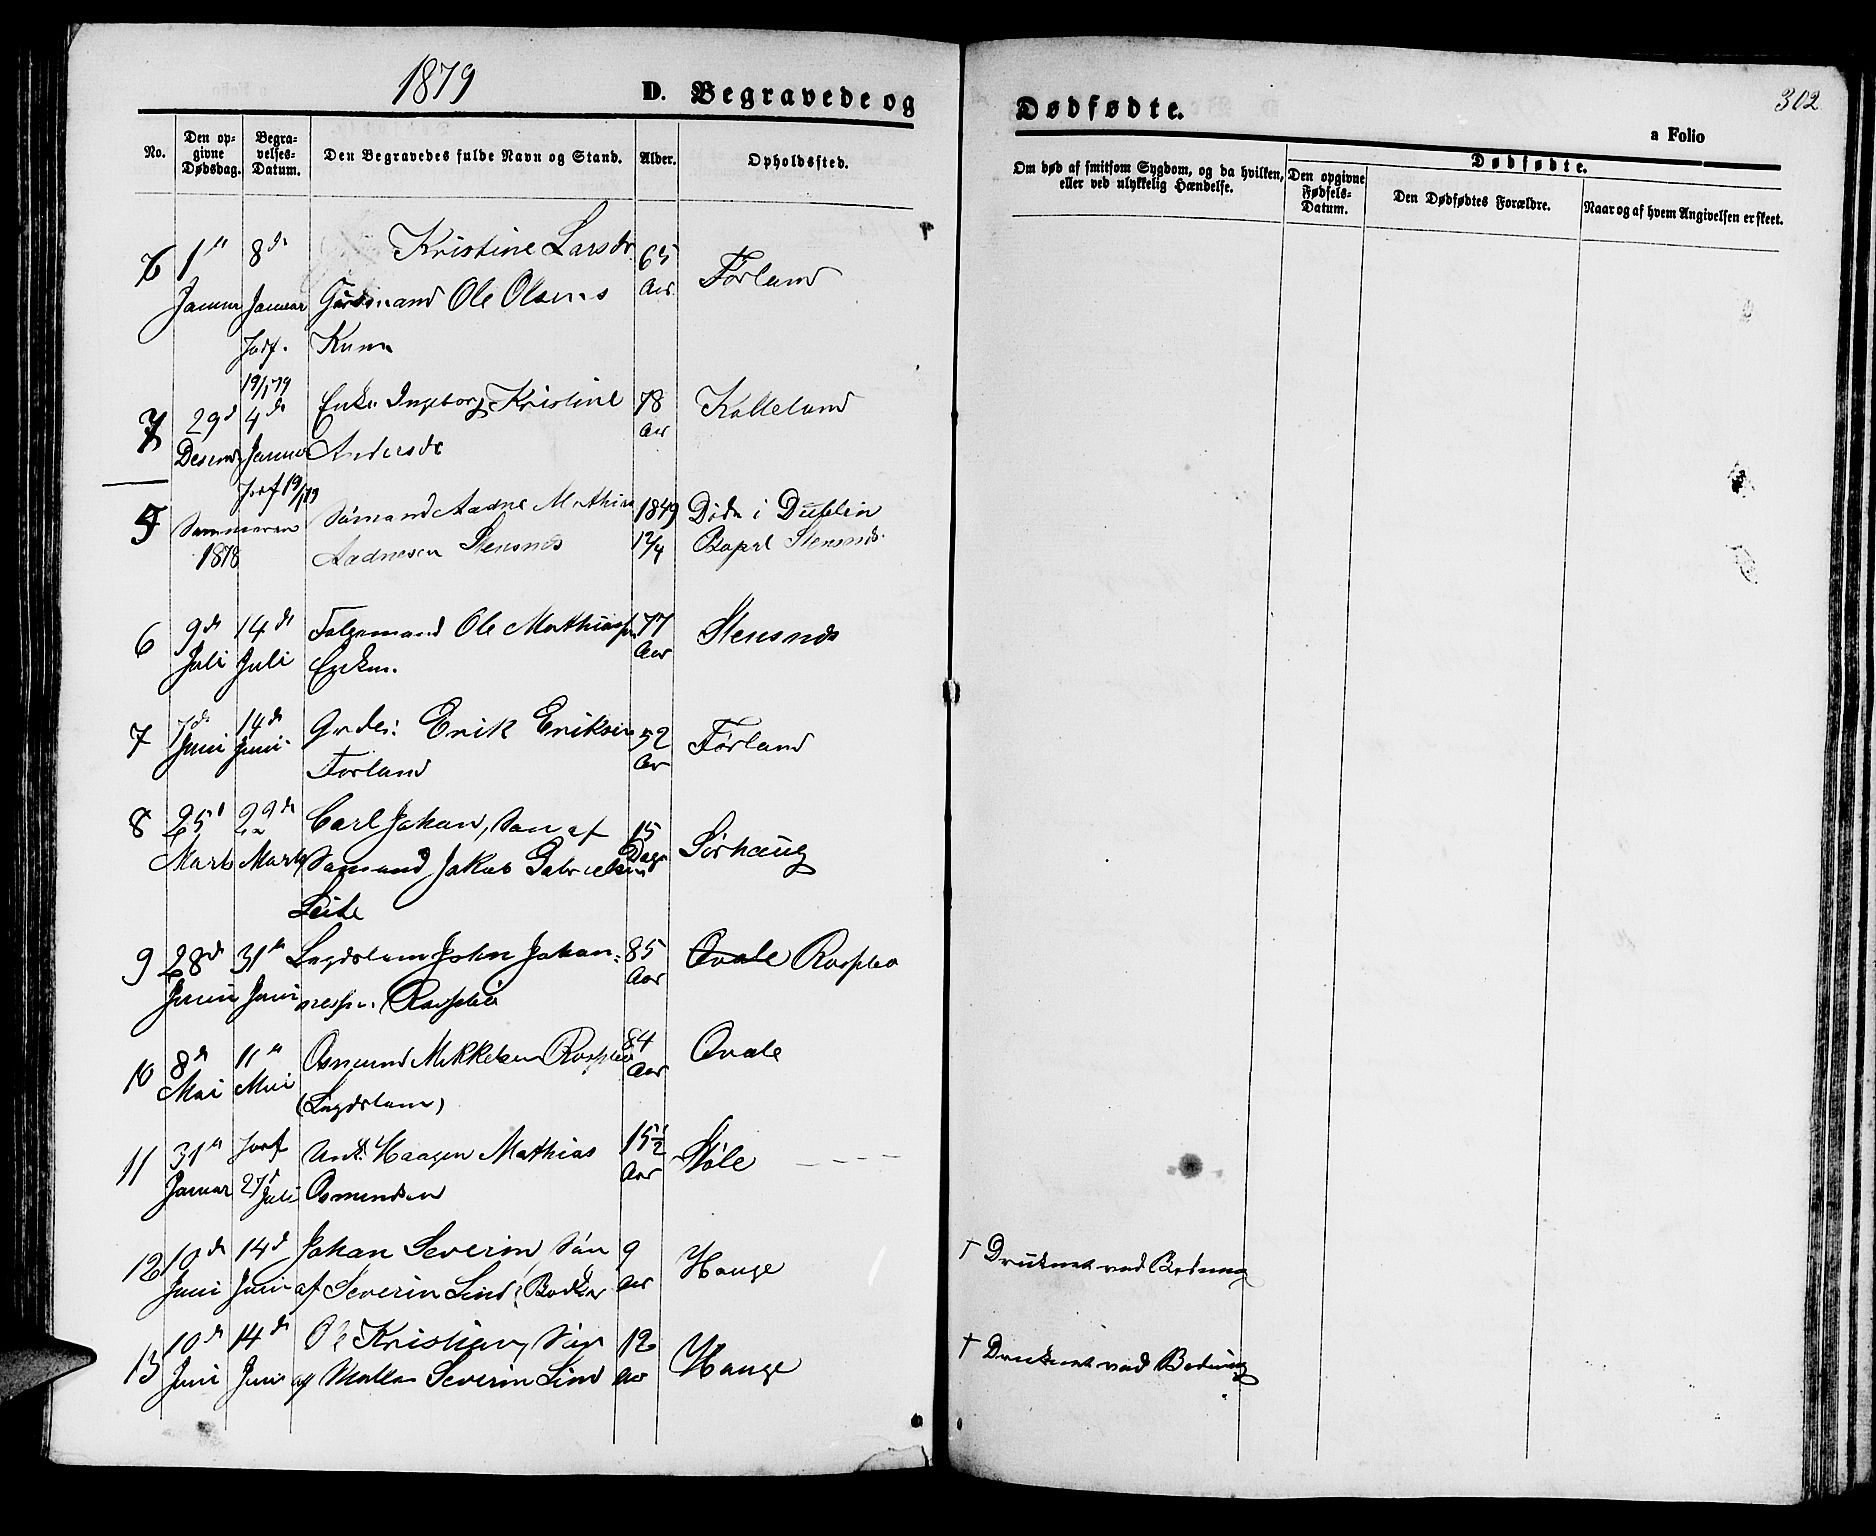 1879
D. Begravede og
No.
Den op-
givne
Dødsdag.
Begra-
velses-
Datum.
Den Begravedes fulde Navn og Stand.
Alder.
Opholdssted.
6 1ste 8de Kristine Larsdr 65 Førland
Januar Januar Gaardmand Ole Olsens Aar
Jordf. Kone
19/1 79
7 29d 4de Enke Ingeborg Kristine 78 Kalleland
Desemb Januar Andersdr Aar
Jordf 19/1 79
5 Sommeren Sømand Aadne Mathias 1849 Døde i Dublin
1878 Aadnesen Stensnes 12/4 Bopæl Stensnes
6 9de 14de Følgemand Ole Mathiassen 77 Stensnes
Juli Juli Enkem. Aar
7 7de 14de Grdei: Erik Eriksen 52 Førland
Juni Juni Førland Aar
8 25d 29de Carl Johan, Søn af 15 Sørhaug
Marts Marts Sømand Jakob Gabrielsen Dage
Leite
9 28d 31te Lægdslem John Johan- 85 Qvale
Juni Juni nessen Aar
10 8de 11te Osmund Mikkelsen 84 Qvale
Mai Mai (Lægdslem) Aar
11 31te Jordf Ungk. Haagen Mathias 15½ Støle
Januar 27d Juli Osmundsen Aar
12 10de 14d Johan Severin, Søn 9 Hauge
Juni Juni af Severin Lind, Bødker Aar
13 10de 14de Ole Kristian, Søn 12 Hauge
Juni Juni af Severin Lind Aar
Dødfødte.
302
a Folio
Om død af smitsom Sygdom, og da hvilken,
eller ved ulykkelig Hændelse.
Dødfødte.
Den opgivne
Fødsels-
Datum.
Den Dødfødtes Forældre.
Naar og af hvem Angivelsen er skeet.
† Druknet ved Badning
† Druknet ved Badning